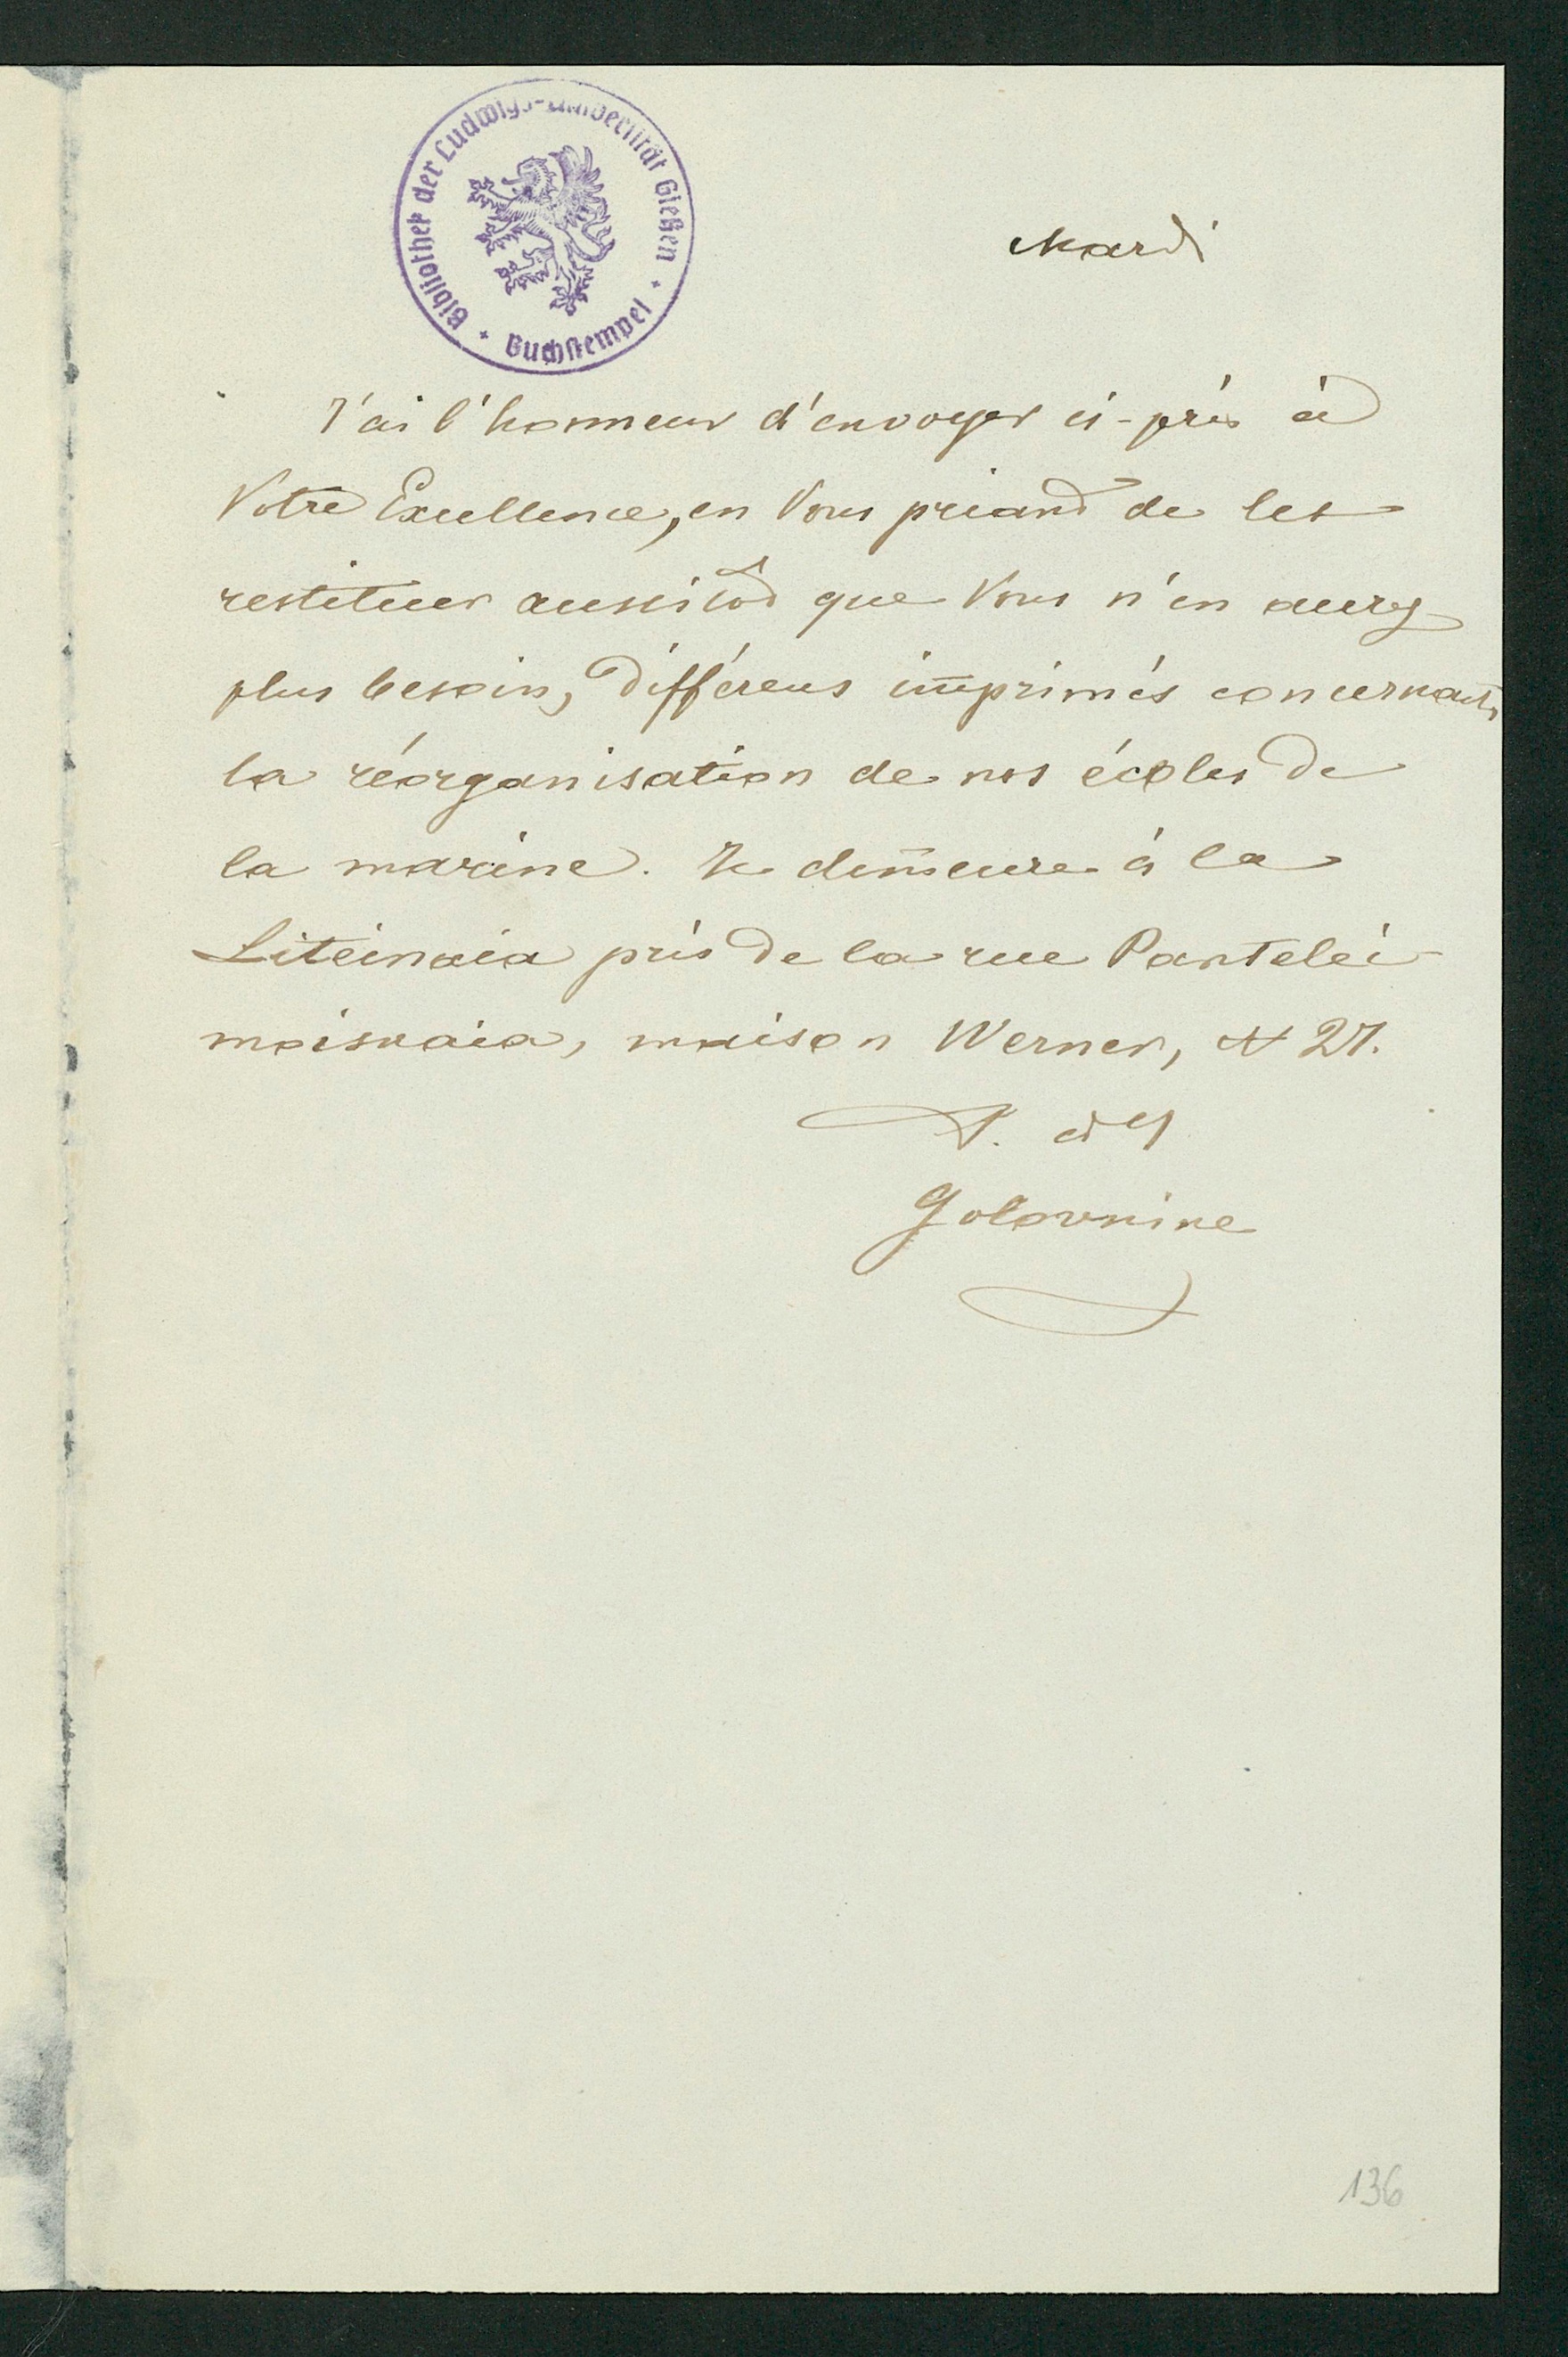 Bibliothek der Ludwigs-Universität Gießen
Buchstempel
Mardi
J'ai l'honneur d'envoyer ci-près à
Votre Excellence, en Vous priant de les
restituer aussitôt que Vous n'en aurez
plus besoin, différens imprimés concernant
la réorganisation de nos écoles de
la marine. Je demeure à la
Liteinaia près de la rue Panteléi-
moisnaia, maison Werner, N 27.
Golovnine
136